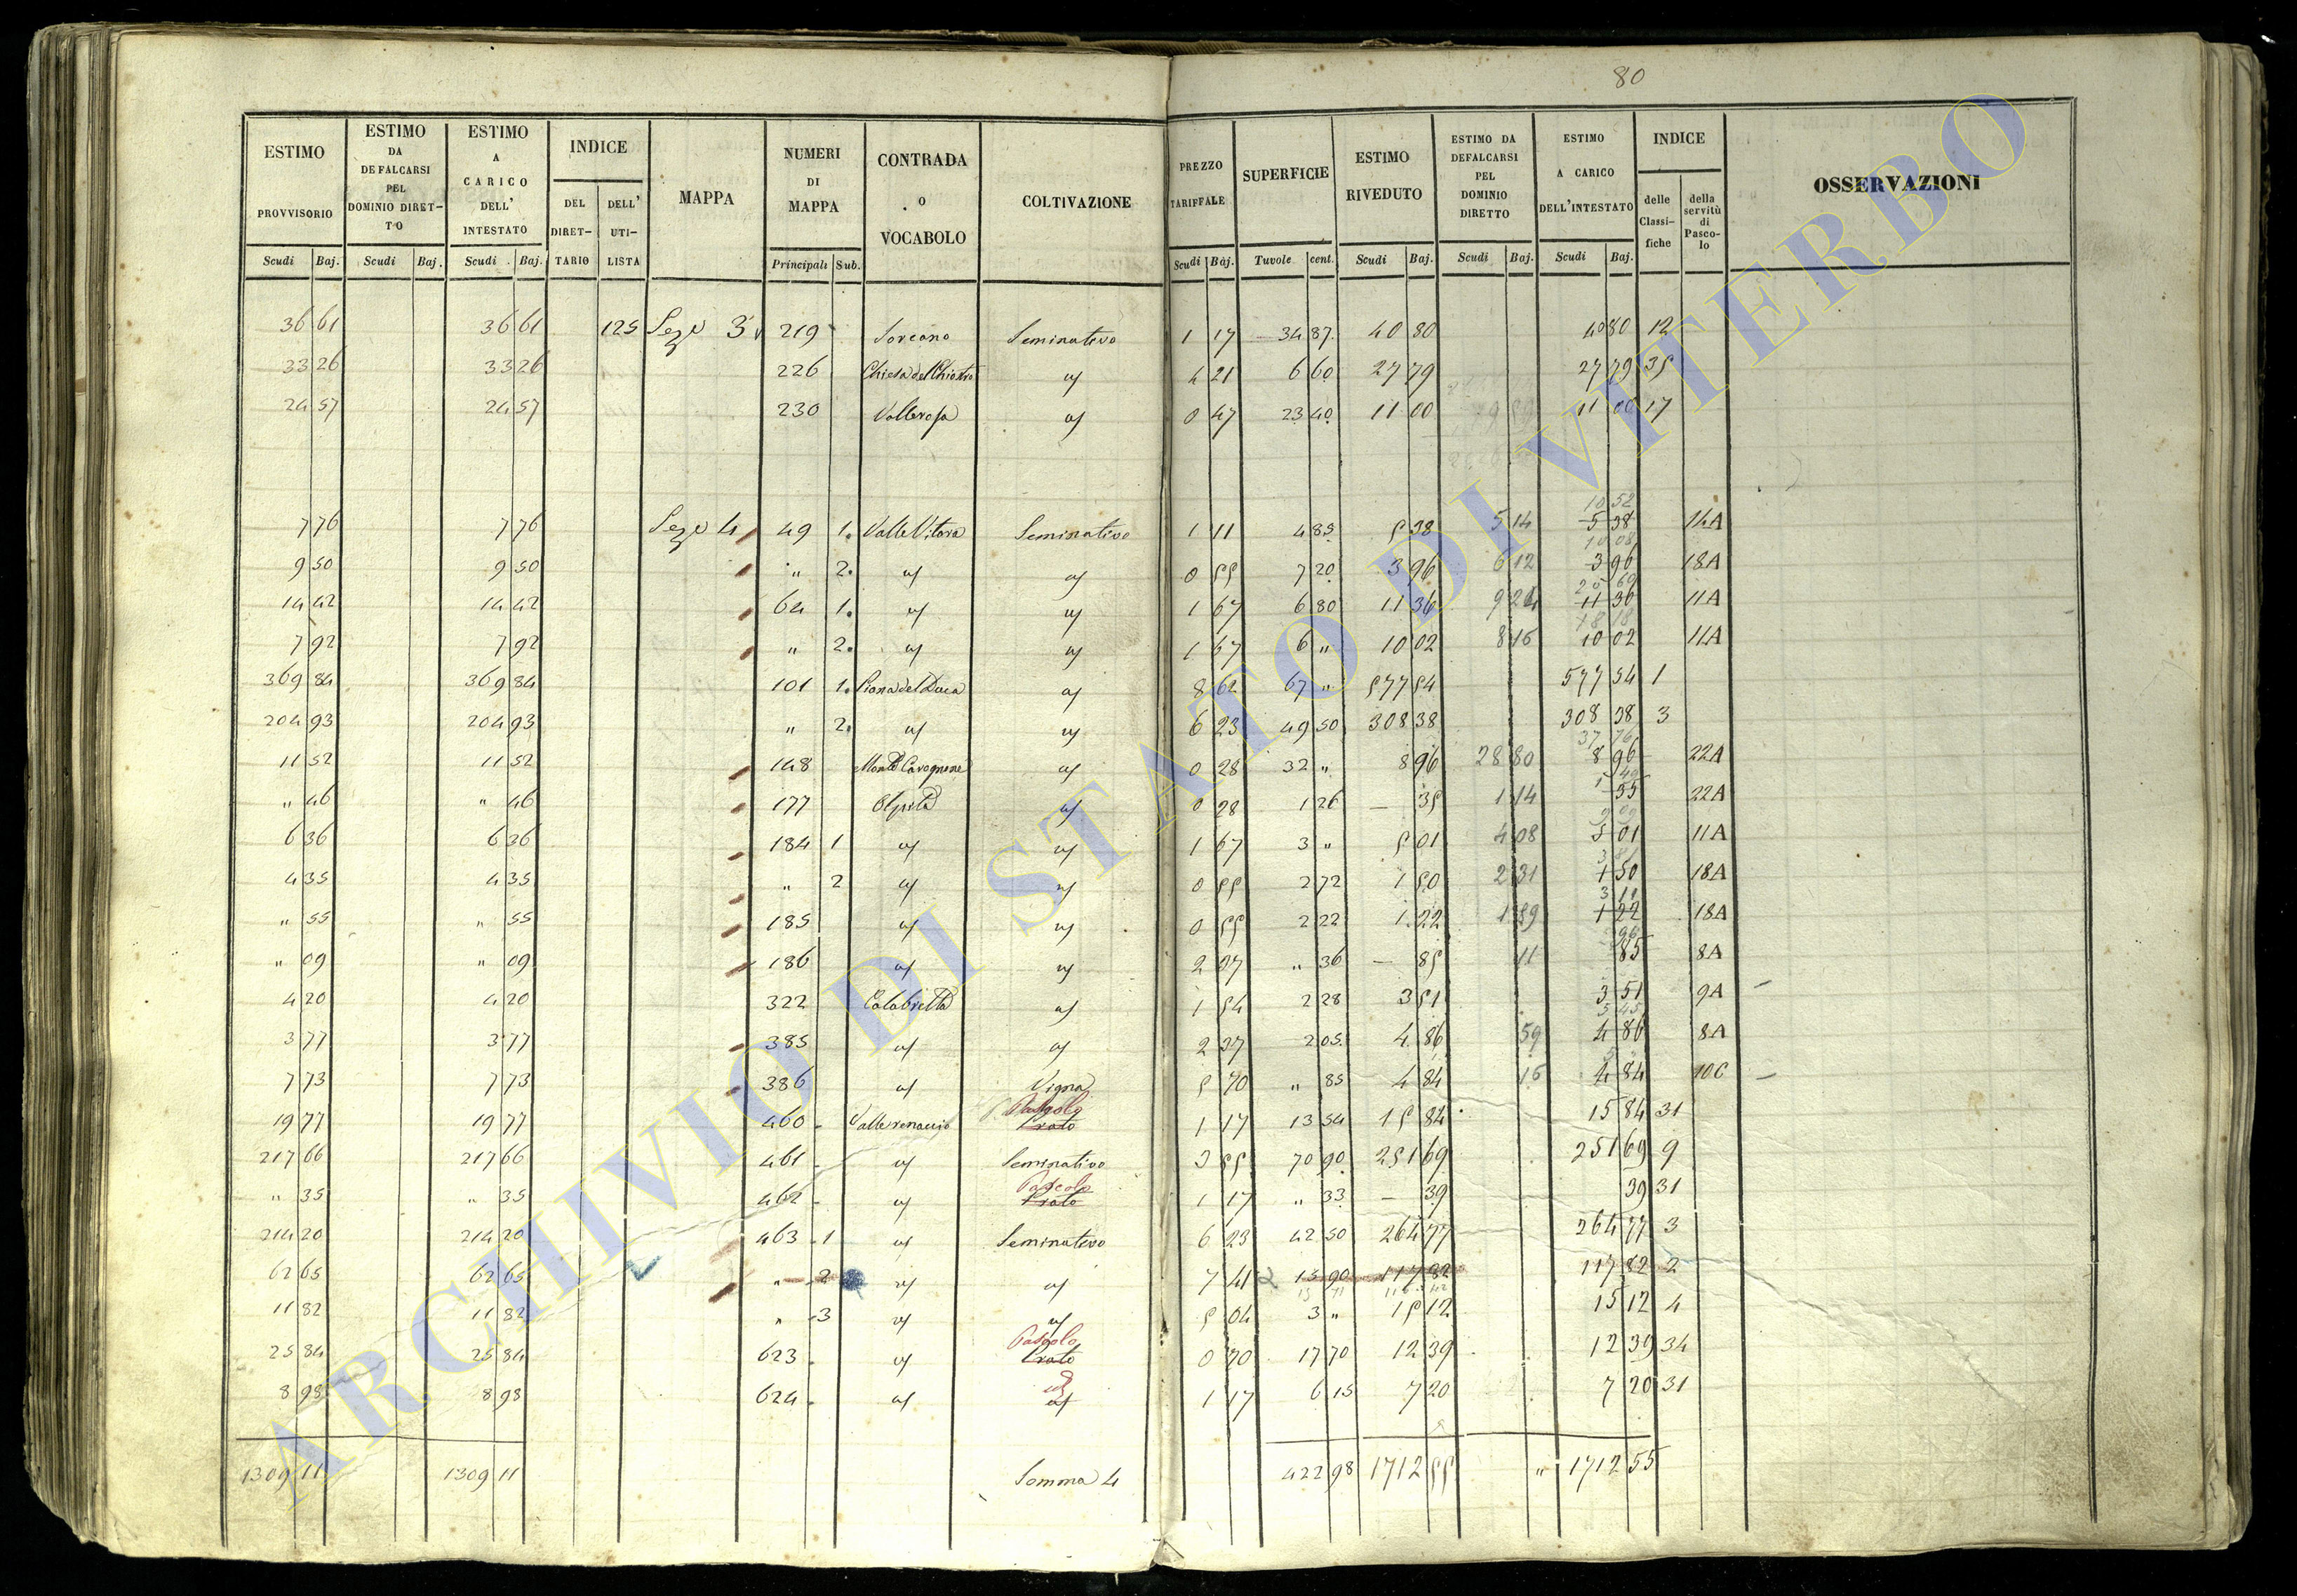 80
ESTIMO PROVVISORIO
ESTIMO DA DEFALCARSI PEL DOMINIO DIRET-TO
ESTIMO A CARICO DELL' INTESTATO
INDICE
DEL DIRET-TARIO
DELL' UTI-LISTA
MAPPA
NUMERI DI MAPPA
CONTRADA O VOCABOLO
COLTIVAZIONE
PREZZO TARIFFALE
SUPERFICIE
ESTIMO RIVEDUTO
ESTIMO DA DEFALCARSI PEL DOMINIO DIRETTO
ESTIMO A CARICO DELL'INTESTATO
INDICE
delle Classi-fiche
della servitù di Pasco-lo
OSSERVAZIONI
Scudi Baj. Scudi Baj. Scudi Baj. Principali Sub. Scudi Baj. Tavole cent. Scudi Baj. Scudi Baj. Scudi Baj.
36 61 36 61 125 Sez. 3 219 Sorcano Seminativo 1 17 34 87 40 80 40 80 12
33 26 33 26 226 Chiesa del Chiostro 4 21 6 60 27 79 27 79 35
24 57 24 57 230 0 47 23 40 11 00 11 00 17
10 52
7 76 7 76 Sez. 4 49 1 Seminativo 1 11 4 85 5 38 5 14 5 38 14A
10 08
9 50 9 50 " 2 0 55 7 20 3 96 6 12 3 96 18A
14 42 14 42 64 1 1 67 6 80 11 36 11 36 11A
18 18
7 92 7 92 " 2 1 67 6 " 10 02 8 16 10 02 11A
369 84 369 84 101 1 Piana del Duca 8 62 67 " 577 54 577 54 1
204 93 204 93 " 2 6 23 49 50 308 38 308 38 3
37 76
11 52 11 52 148 0 28 32 " 8 96 28 80 8 96 22A
1 49
" 46 " 46 177 0 28 1 26 — 35 1 14 35 22A
9 09
6 36 6 36 184 1 1 67 3 " 5 01 4 08 5 01 11A
3 81
4 35 4 35 " 2 0 55 2 72 1 50 2 31 1 50 18A
3 11
" 55 " 55 185 0 55 2 22 1 22 1 89 1 22 18A
96
" 09 " 09 186 2 37 " 36 — 85 11 85 8A
4 20 4 20 322 Calabretta 1 54 2 28 3 51 3 51 9A
5 45
3 77 3 77 385 2 37 2 05 4 86 59 4 86 8A
7 73 7 73 386 Vigna 5 70 " 85 4 84 16 4 84 10C
Pascolo
19 77 19 77 460 Prato 1 17 13 54 15 84 15 84 31
217 66 217 66 461 Seminativo 3 55 70 90 251 69 251 69 9
Pascolo
" 35 " 35 462 Prato 1 17 " 33 — 39 39 31
214 20 214 20 463 1 Seminativo 6 23 42 50 264 77 264 77 3
62 65 62 65 " 2 7 41 15 90 117 82 117 82 2
11 82 11 82 " 3 5 04 3 " 15 12 15 12 4
Pascolo
25 84 25 84 623 Prato 0 70 17 70 12 39 12 39 34
8 98 8 98 624 1 17 6 15 7 20 7 20 31
1309 11 1309 11 Somma 4 422 98 1712 55 " 1712 55
ARCHIVIO DI STATO DI VITERBO